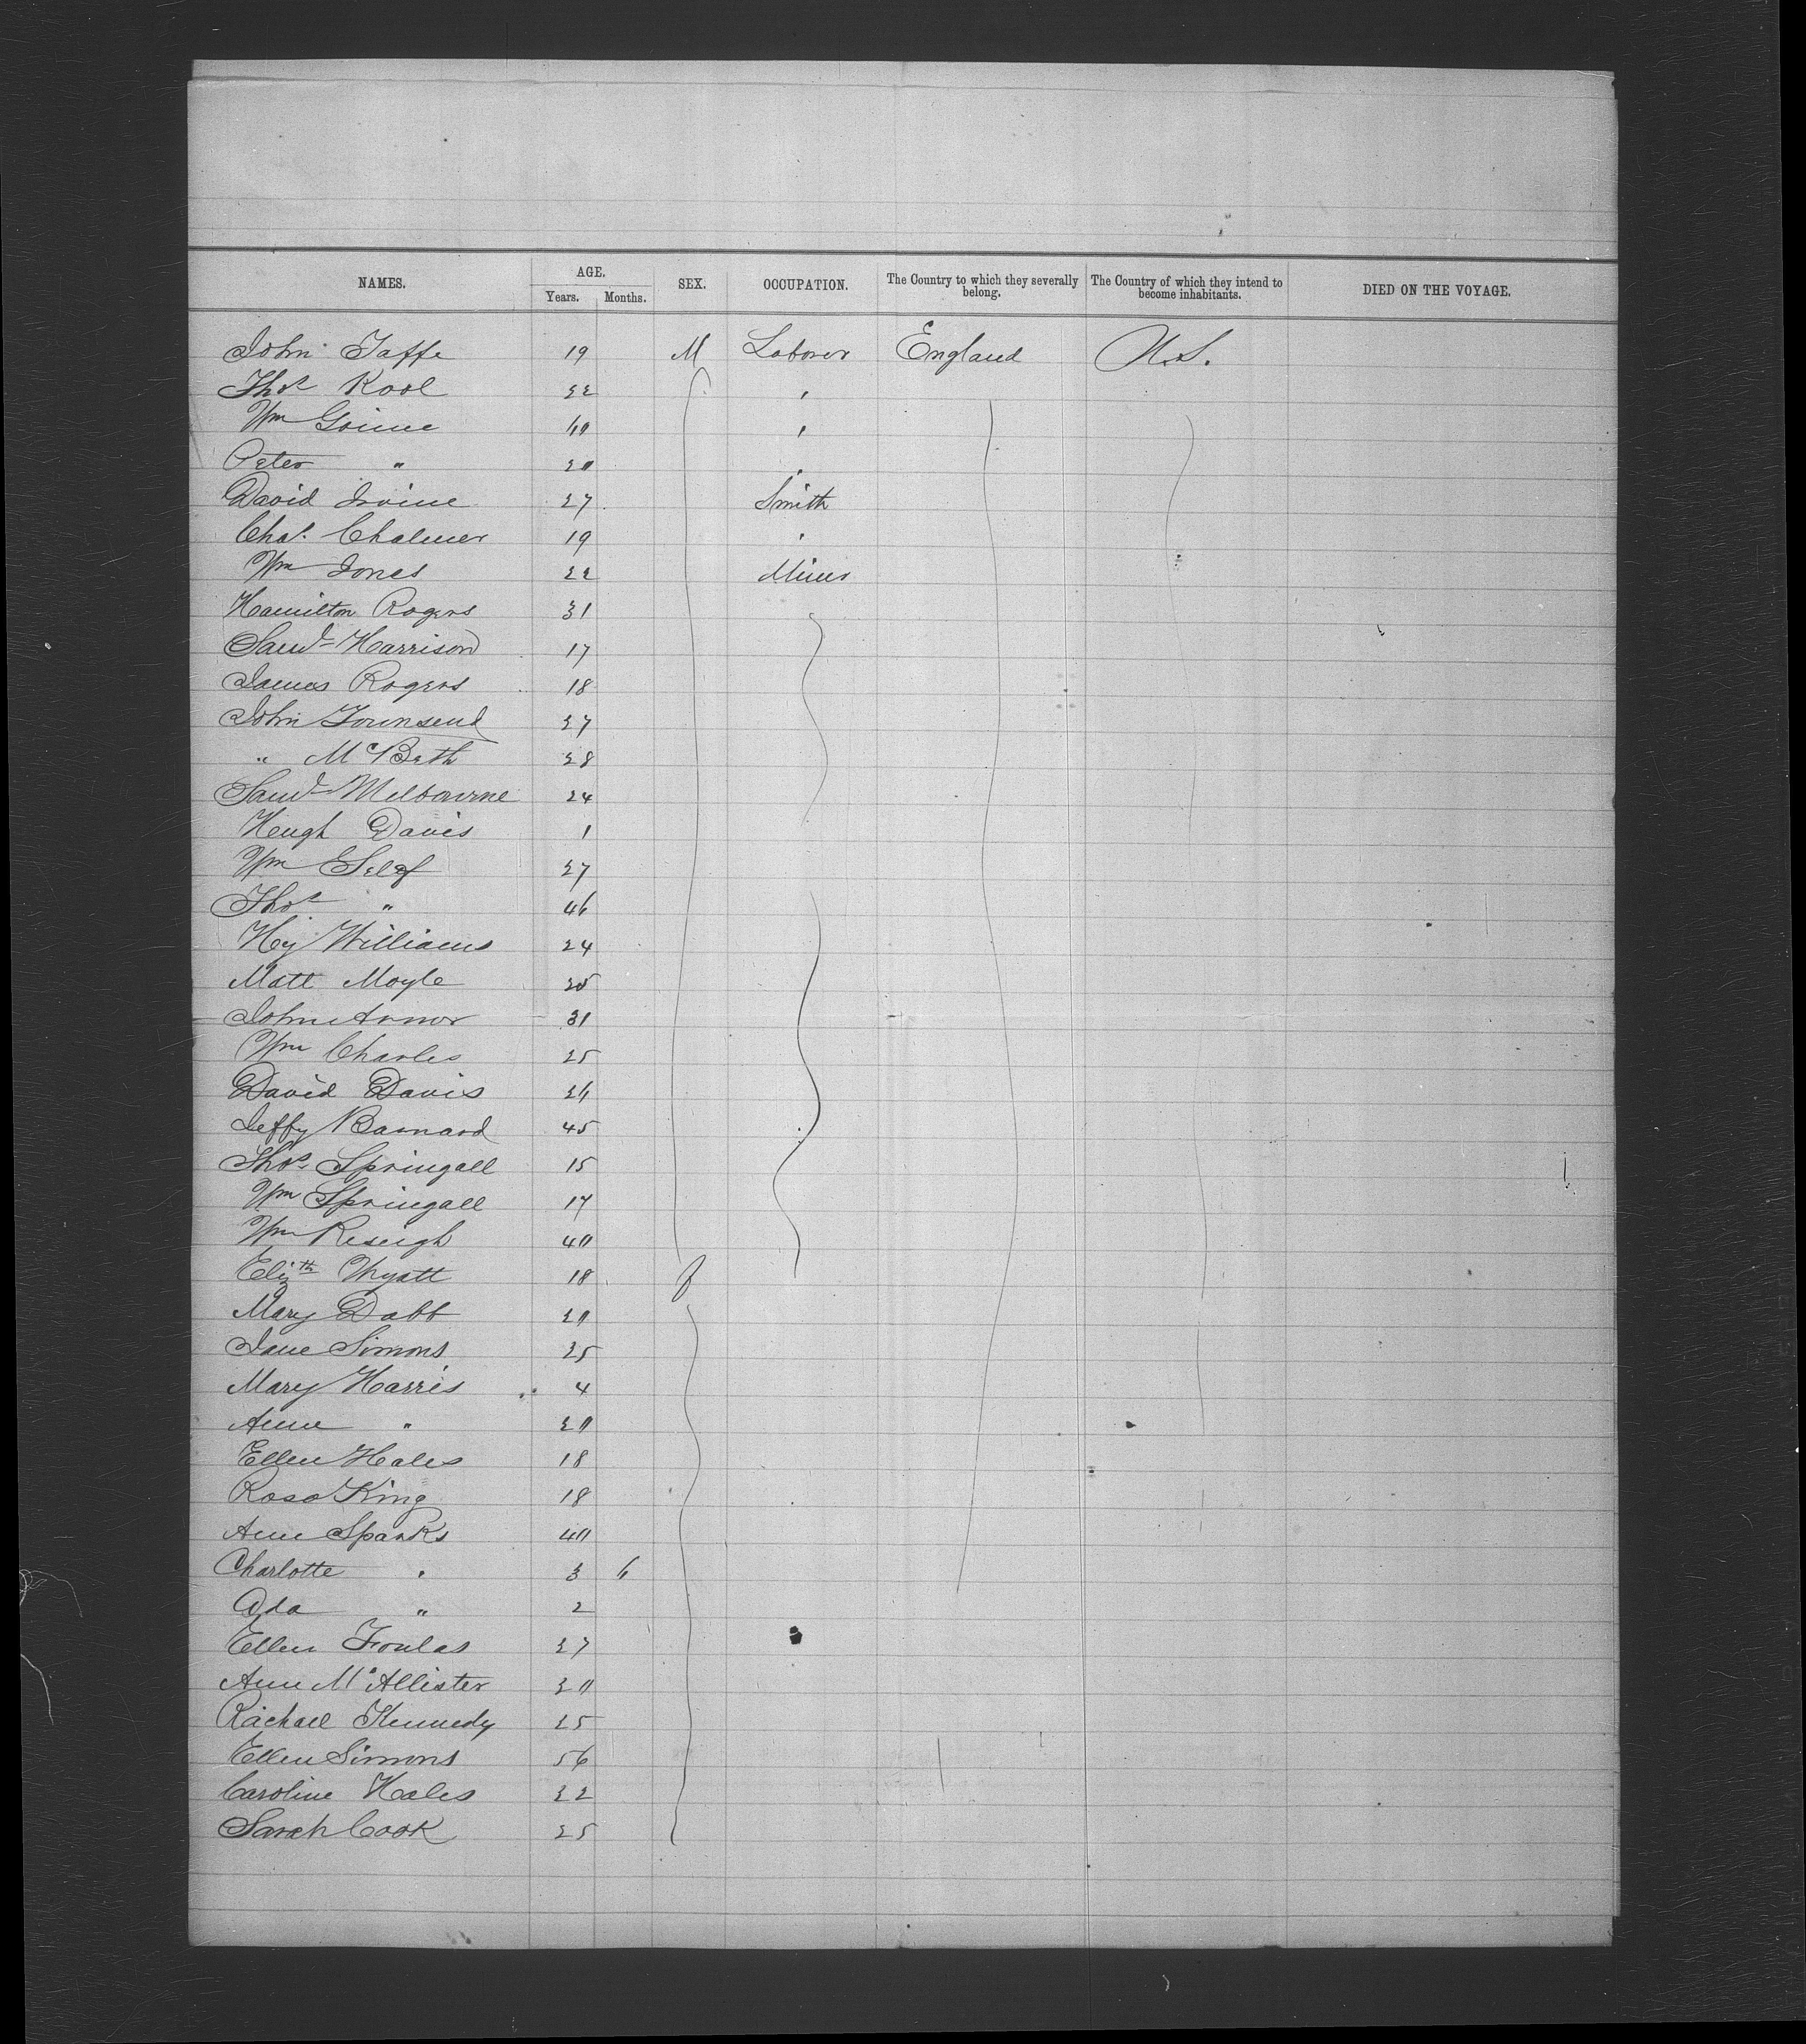 NAMES. AGE. SEX. OCCUPATION. The Country to which they severally belong. The Country of which they intend to become inhabitants. DIED ON THE VOYAGE.
Years. Months.
John Taffe 19 M Laborer England U.S.
Thos Kool 22 "
Wm 40 "
Peter " 20 "
David Irvine 27 Smith
Chas. Chalmer 19 "
Wm Jones 22 Miner
Hamilton Rogers 31
Saml Harrison 17
James Rogers 18
John Townsend 27
" McBeth 28
Saml Melbourne 24
Hugh Davis 1
Wm Self 27
Thos " 46
Hy Williams 24
Matt Moyle 25
John Armor 31
Wm Charles 25
David Davis 26
Jeffy Barnard 45
Thos Springall 15
Wm Springall 17
Wm Reseigh 40
Elizth Wyatt 18 f
Mary Dabb 20
Jane Simons 25
Mary Harris 4
Anne " 20
Ellen Hales 18
Rosa King 18
Ann Sparks 40
Charlotte " 3 6
Ada " 2
Ellen Foulas 27
Ann McAllister 20
Rachael Kennedy 25
Ellen Simons 56
Caroline Hales 22
Sarah Cook 25